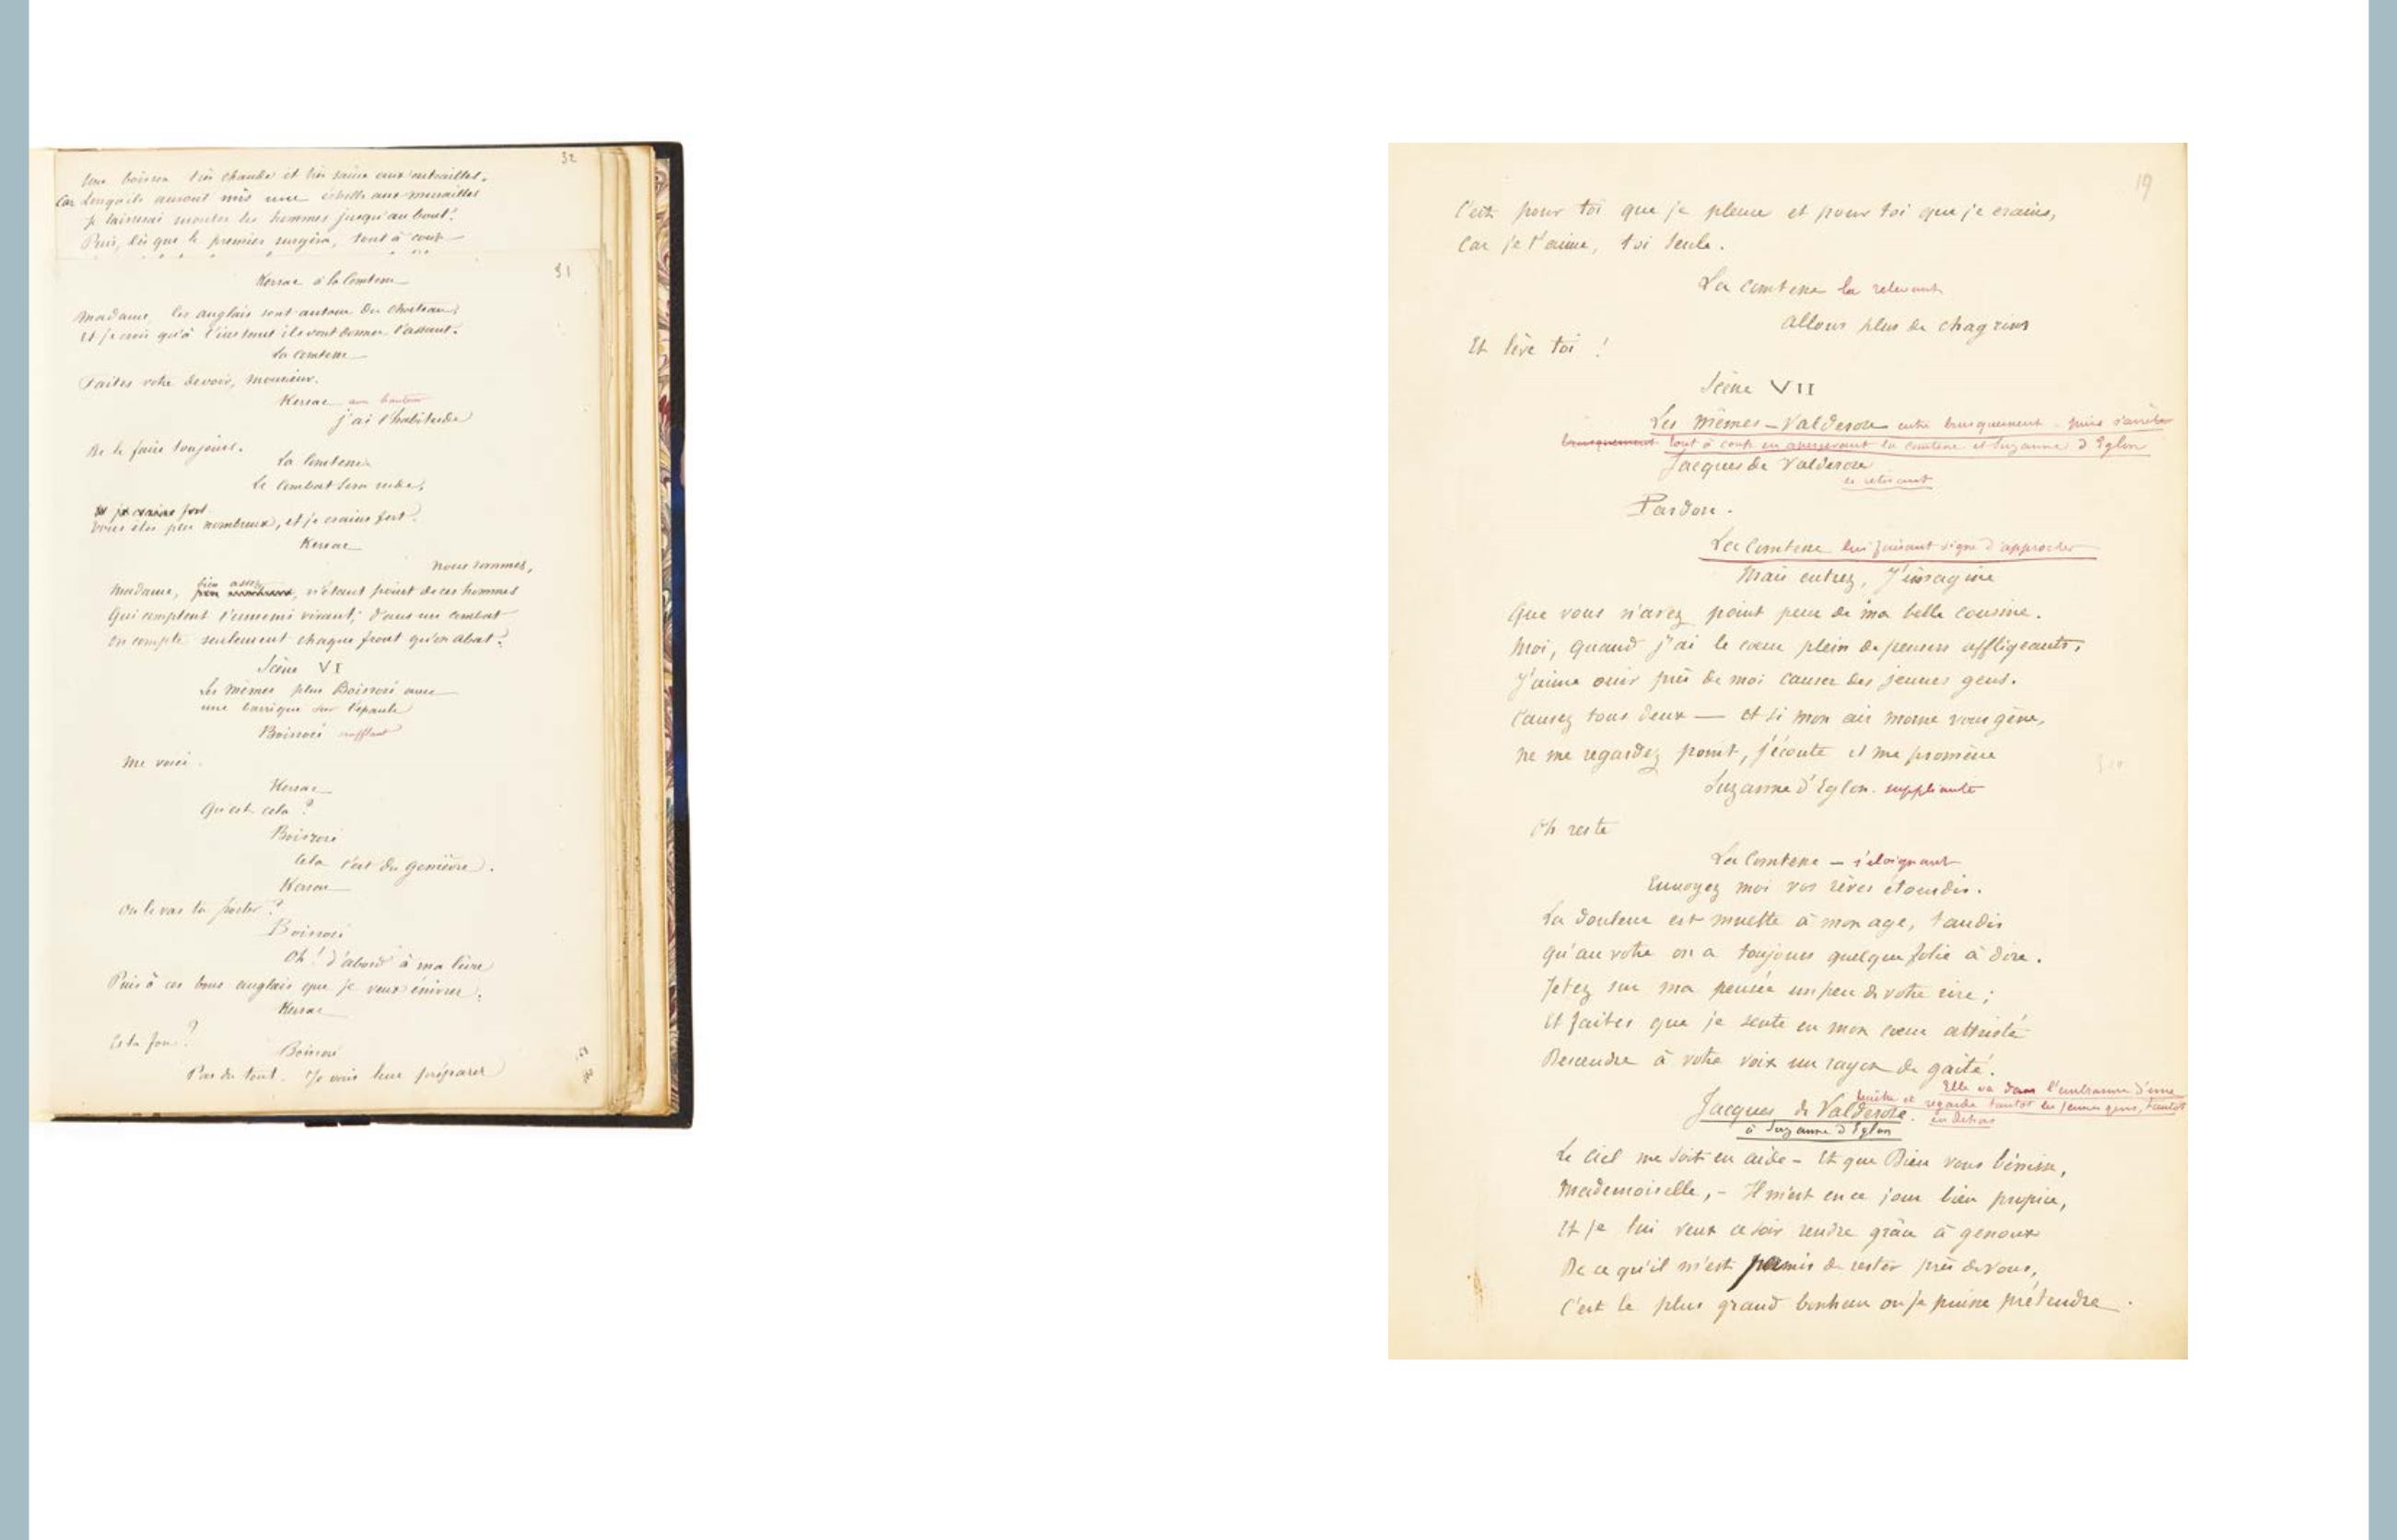 32
Une boisson très chaude et très saine aux entrailles.
Car lorsqu'ils auront mis une échelle aux murailles
Je laisserai monter les hommes jusqu'au bout!
Puis, dès que le premier surgira, tout à coup
31
Kersac à la Comtesse
Madame, les anglais sont autour du château;
Et je crois qu'à l'instant ils vont donner l'assaut.
La Comtesse
Faites votre devoir, Monsieur.
Kersac avec hauteur
j'ai l'habitude
De le faire toujours.
La Comtesse
Le Combat sera rude,
Et je crains fort
Vous êtes peu nombreux, et je crains fort.
Kersac
Nous sommes,
bien assez
Madame, peu nombreux, n'étant point de ces hommes
Qui comptent l'ennemi vivant; dans un combat
On compte seulement chaque front qu'on abat.
Scène VI
Les mêmes plus Boisrosé avec
une barrique sur l'épaule
Boisrosé soufflant
Me voici.
Kersac
Qu'est cela?
Boisrosé
Cela c'est du genièvre.
Kersac
Où le vas tu porter?
Boisrosé
Oh! d'abord à ma lèvre
Puis à ces bons anglais que je veux énivrer.
Kersac
Es tu fou?
Boisrosé
Pas du tout. Je vais leur préparer
19
C'est pour toi que je pleure et pour toi que je crains,
Car je t'aime, toi seule.
La comtesse la relevant
Allons plus de chagrins
Et lève toi!
Scène VII
Les Mêmes – Valderose entre brusquement puis s'arrête
brusquement tout à coup en apercevant la comtesse et Suzanne d'Eglon
Jacques de Valderose
se retirant
Pardon.
La Comtesse lui faisant signe d'approcher
Mais entrez, J'imagine
Que vous n'avez point peur de ma belle cousine.
Moi, quand j'ai le cœur plein de pensers affligeants,
J'aime ouir près de moi causer des jeunes gens.
Causez tous deux — et si mon air morne vous gêne,
Ne me regardez point, j'écoute et me promène
Suzanne d'Eglon. suppliante
Oh reste
La Comtesse – s'éloignant
Envoyez moi vos rêves étourdis.
La douleur est muette à mon age, tandis
Qu'au votre on a toujours quelque folie à dire.
Jetez sur ma pensée un peu de votre rire;
Et faites que je sente en mon cœur attristé
Descendre à votre voix un rayon de gaité.
Elle va dans l'embrasure d'une
fenêtre et regarde tantôt les jeunes gens, tantôt
en dehors
Jacques de Valderose.
à Suzanne d'Eglon
Le Ciel me soit en aide – Et que Dieu vous bénisse,
Mademoiselle, – Il m'est en ce jour bien propice,
Et je lui veux ce soir rendre grâce à genoux
De ce qu'il m'est permis de rester près de vous,
C'est le plus grand bonheur où je puisse prétendre.